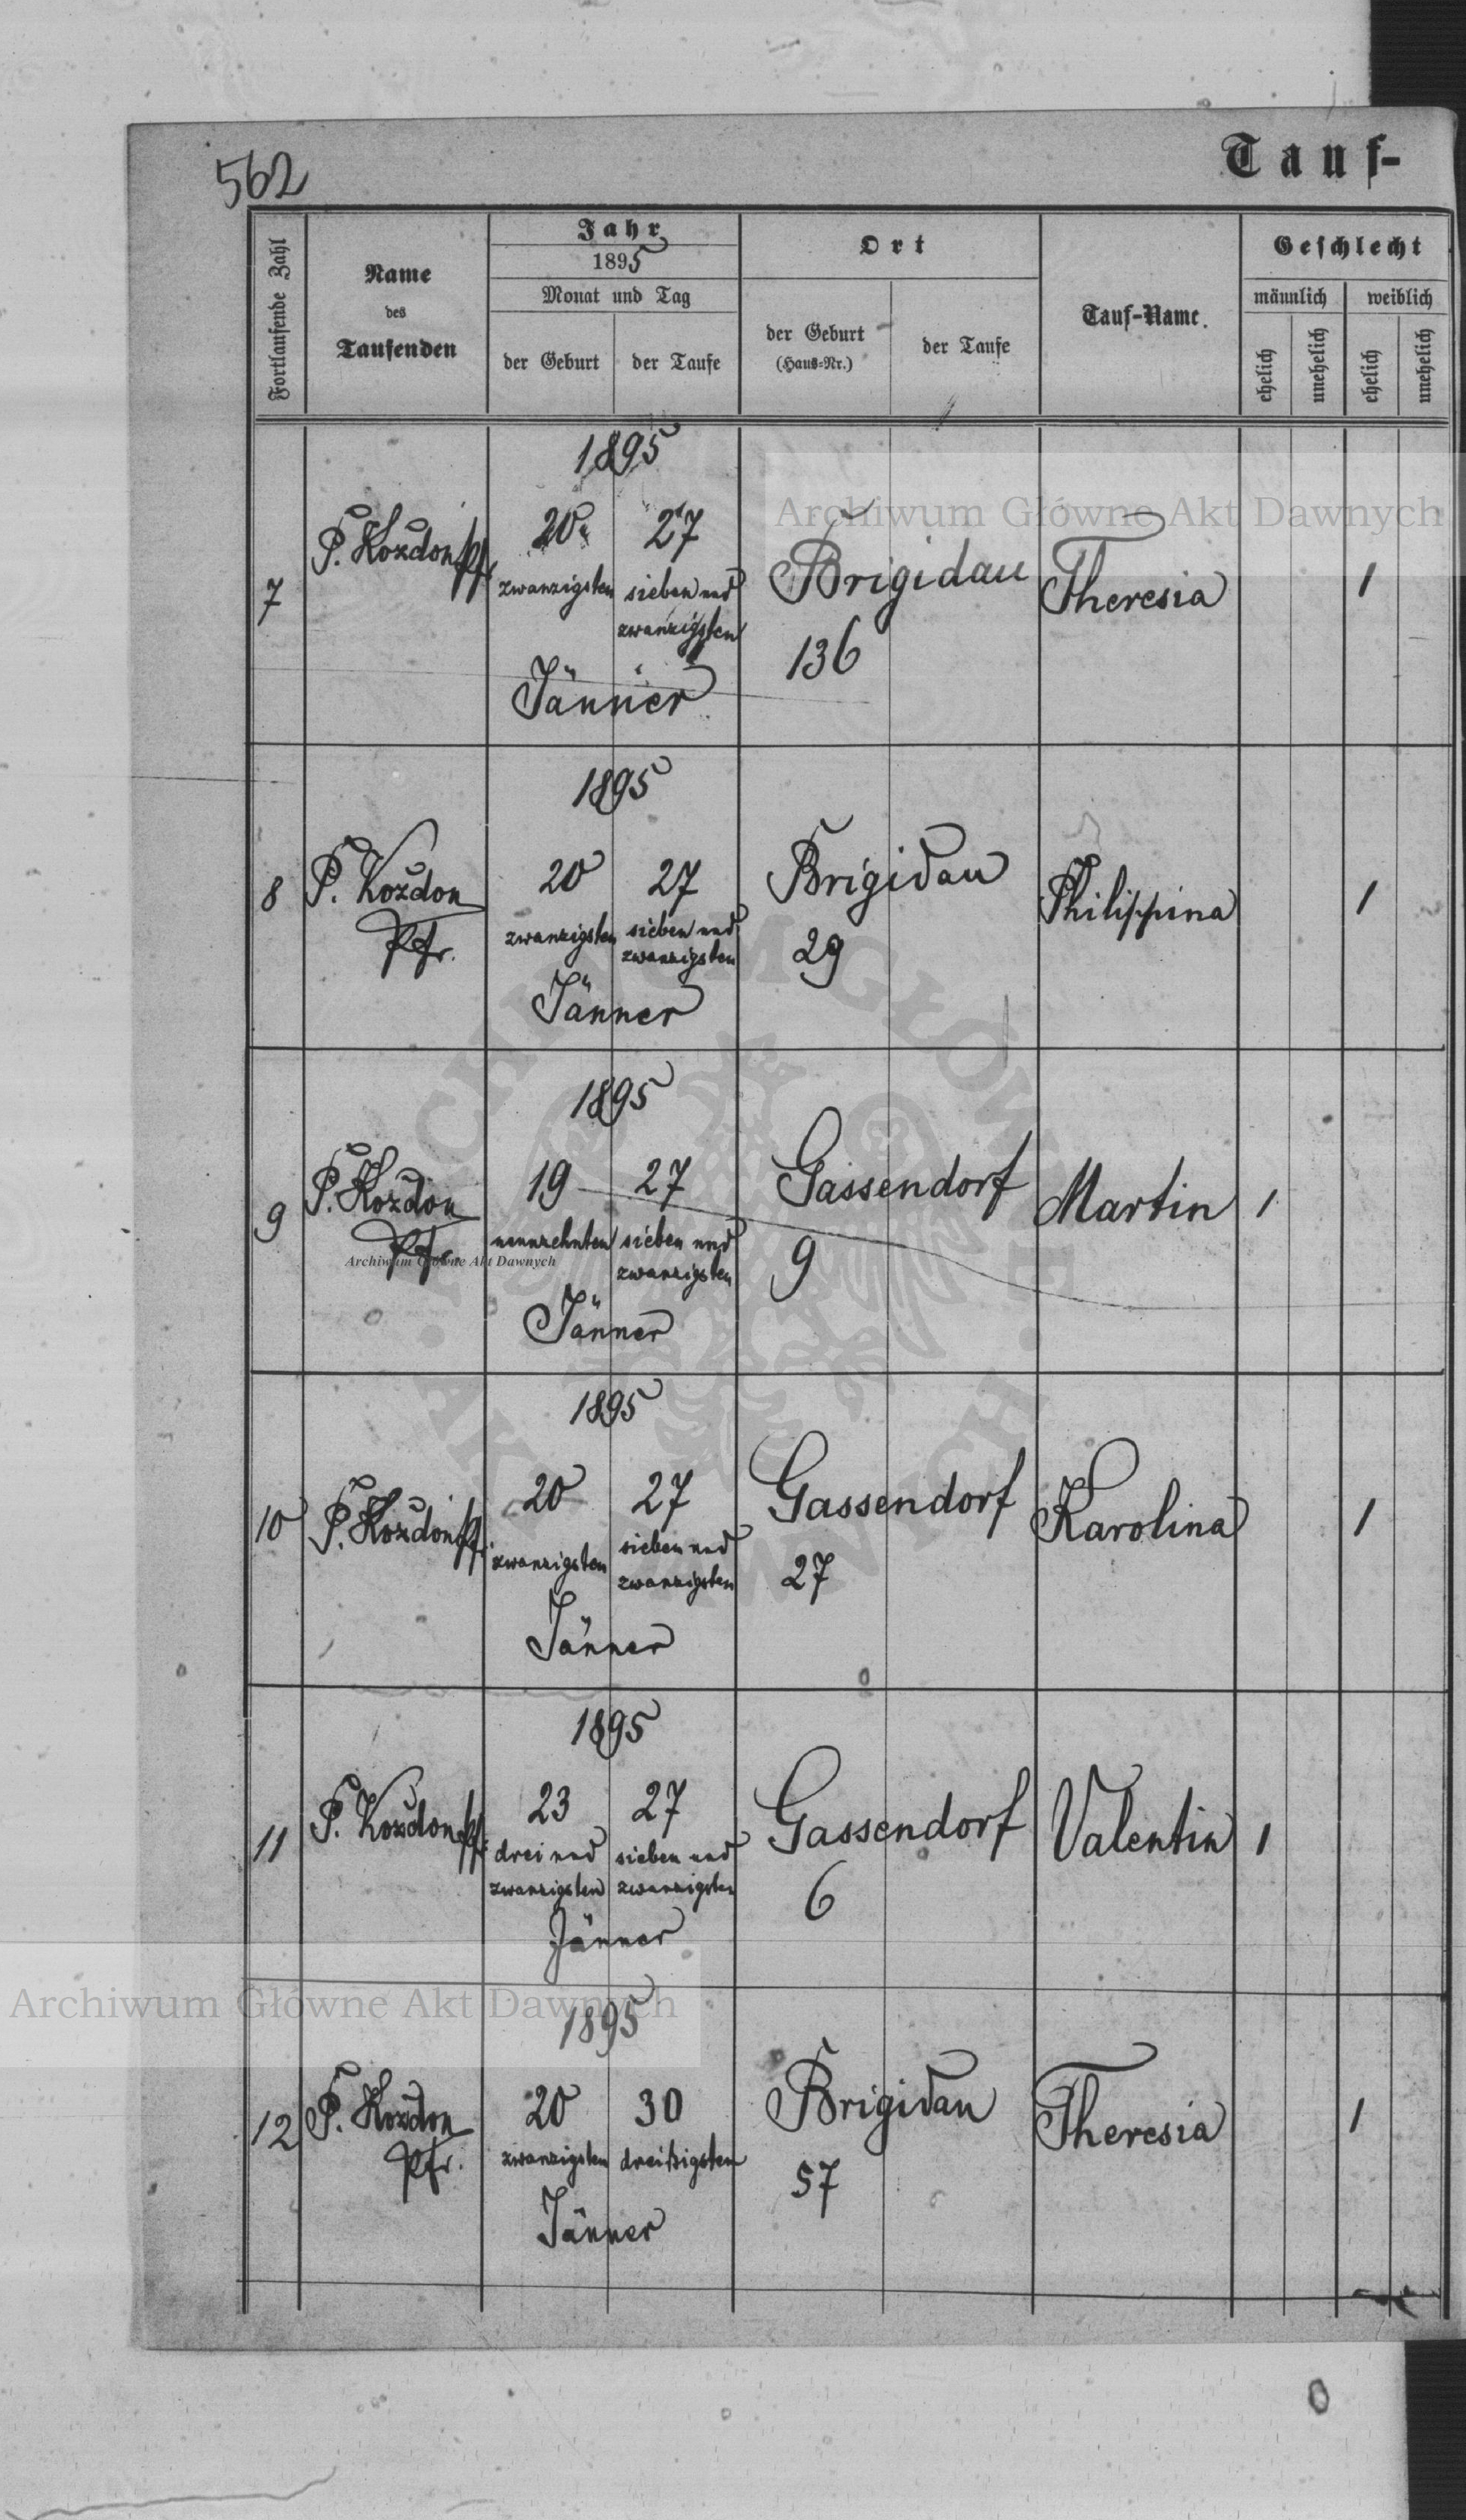 562
Tauf-
Fortlaufende Zahl
Name
des
Taufenden
Jahr
1895
Monat und Tag
der Geburt
der Taufe
Ort
der Geburt
(Haus-Nr.)
der Taufe
Tauf-Name.
Geschlecht
männlich
weiblich
ehelich
unehelich
ehelich
unehelich
7
P. Kozdon Pfr.
1895
20
27
zwanzigsten
sieben und
zwanzigsten
Jänner
Brigidau
136
Theresia
1
8
P. Kozdon
Pfr.
1895
20
27
zwanzigsten
sieben und
zwanzigsten
Jänner
Brigidau
29
Philippina
1
9
P. Kozdon
Pfr.
1895
19
27
neunzehnten
sieben und
zwanzigsten
Jänner
Gassendorf
9
Martin
1
10
P. Kozdon Pfr.
1895
20
27
zwanzigsten
sieben und
zwanzigsten
Jänner
Gassendorf
27
Karolina
1
11
P. Kozdon Pfr.
1895
23
27
drei und
zwanzigsten
sieben und
zwanzigsten
Jänner
Gassendorf
6
Valentin
1
12
P. Kozdon
Pfr.
1895
20
30
zwanzigsten
dreißigsten
Jänner
Brigidau
57
Theresia
1
Archiwum Główne Akt Dawnych
Archiwum Główne Akt Dawnych
Archiwum Główne Akt Dawnych